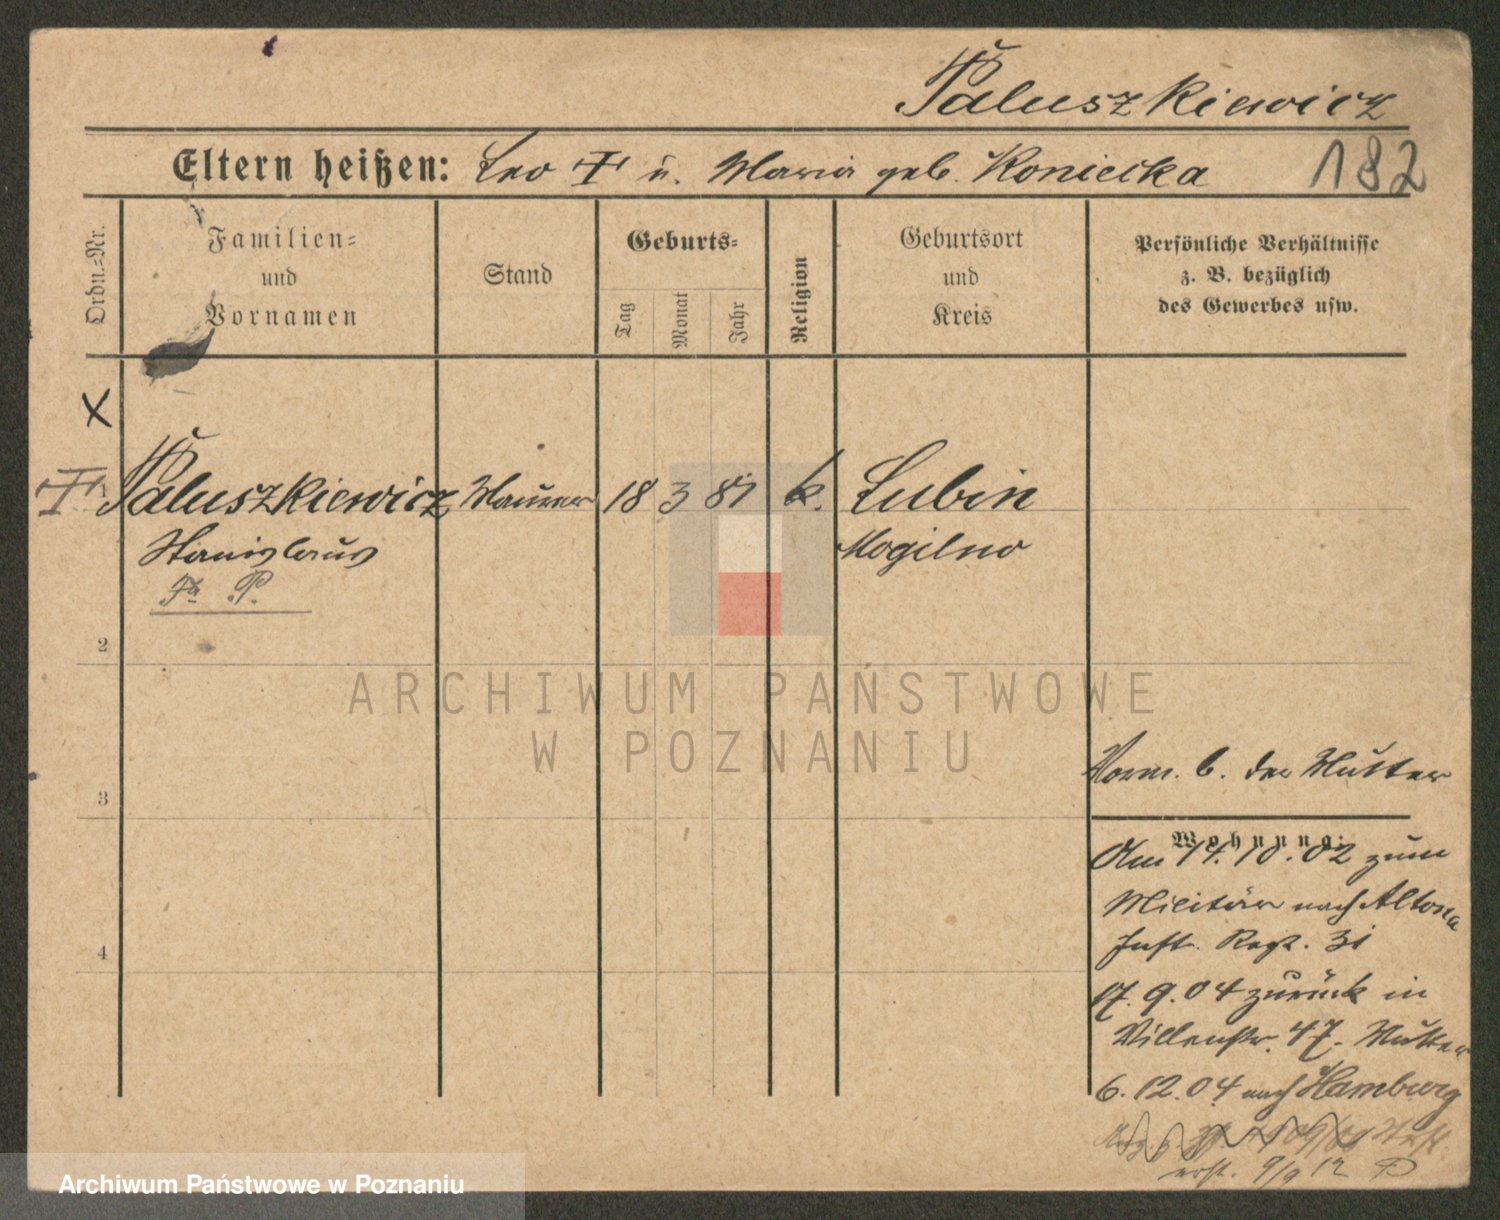 Paluszkiewicz
Eltern heißen: Leo † u. Maria geb. Koniecka 182
Ordn.-Nr.
Familien=
und
Vornamen
Stand
Geburts=
Tag
Monat
Jahr
Religion
Geburtsort
und
Kreis
Persönliche Verhältnisse
z. B. bezüglich
des Gewerbes usw.
X
† Paluszkiewicz Maurer 18 3 81 k. Lubin
Stanislaus Mogilno
P.
2
3
4
Vorm. b. der Mutter
Wohnung:
Am 14.10.02 zum
Militär nach Altona
Inft. Regt. 31
17.9.04 zurück in
Villenstr. 47. Mutter
6.12.04 nach Hamburg
7/9 12
ARCHIWUM PAŃSTWOWE
W POZNANIU
Archiwum Państwowe w Poznaniu